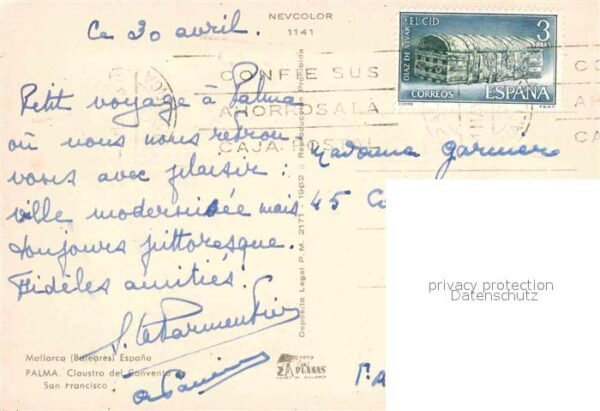 NEVCOLOR
1141
Ce 30 avril.
Petit voyage à Palma
où nous nous retrou-
vons avec plaisir :
ville modernisée mais
toujours pittoresque.
Fidèles amitiés.
Mallorca (Baleares) España
PALMA. Claustro del Convento
San Francisco
FOTO
PLANAS
Depósito Legal P. M. 2171 - 1962 Reproducción Prohibida
CONFIE SUS
AHORROS A LA
CAJA POSTAL
RUY DIAZ DE VIVAR "EL CID
3
PTAS
CORREOS ESPAÑA
Madame Garnier
45
privacy protection
Datenschutz